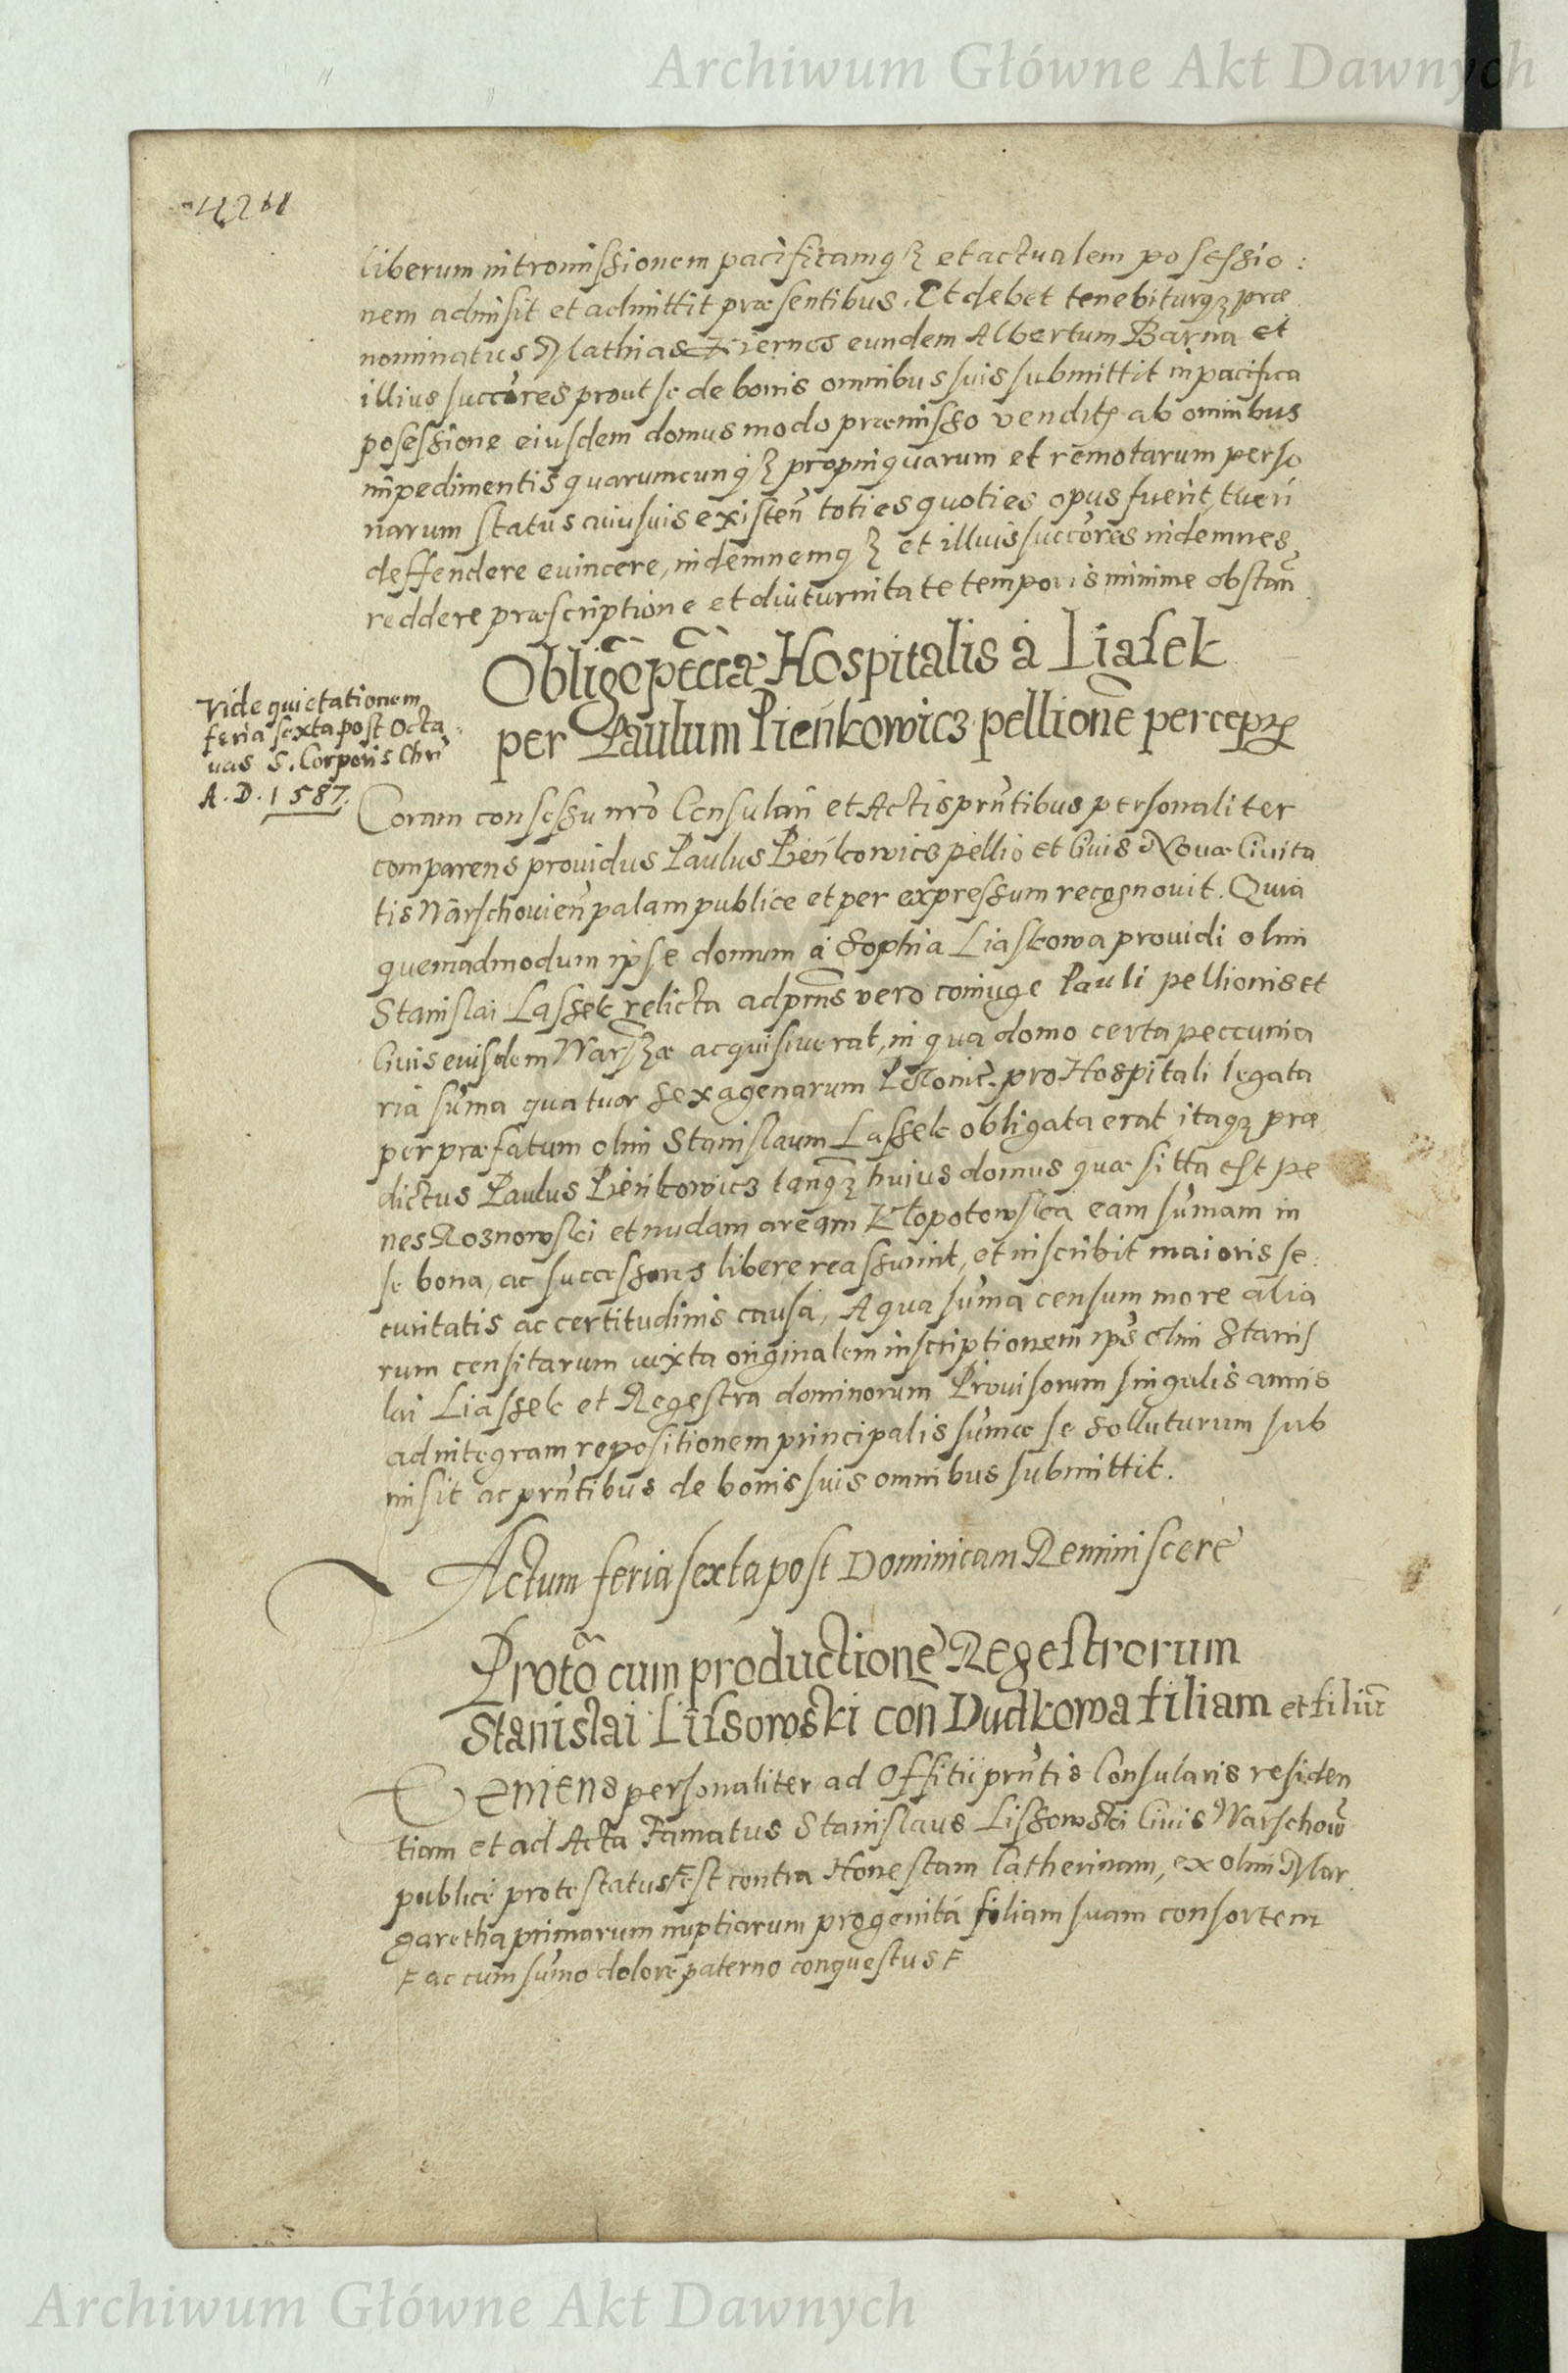 Archiwum Główne Akt Dawnych
liberum intromissionem pacificamq₃ et actualem posessio:
nem admisit et admittit præsentibus. Et debet tenebiturq₃ præ
nominatus Mathias eundem Albertum Barna et
illius succōres prout se de bonis omnibus suis submittit in pacifica
posessione eiusdem domus modo præmisso vendit ab omnibus
impedimentis quarumcunq₃ propinquarum et remotarum perso
narum status cuiusvis existen̄ toties quoties opus fuerit, tueri
deffendere evincere, indemnemq₃ et illius succōres indemnes
reddere præscriptione et diuturnitate temporis minime obstan̄.
Obligō pēccæ Hospitalis à Liasek
per Paulum Pieńkowicz pellionē percep
Vide quietationem
feria sexta post Octa
uas S. Corporis Chri
A. D. 1587.
Coram consessu nrō Consulari et Actis prn̄tibus personaliter
comparens prouidus Paulus Pieńkowicz pellio et Ciuis Nouæ Ciuita
tis Warschouien̄ palam publice et per expressum recognouit. Quia
quemadmodum ipse domum à Sophia Liaskowa prouidi olim
Stanislai Lassek relicta ad prn̄s vero coniuge Pauli pellionis et
Ciuis eiusdem acquisiuerat, in qua domo certa peccunia
ria sum̄a quatuor sexagenarum pro Hospitali legata
per præfatum olim Stanislaum Lassek obligata erat itaq₃ præ
dictus Paulus Pieńkowicz tanq₃ huius domus quæ sitta est pe
nes Roznowski et nudam aream Kłopotowska eam sum̄am in
se bona, ac successores libere reassumit, et inscribit maioris se
curitatis ac certitudinis causa, A qua sum̄a censum more alia
rum censitarum iuxta originalem inscriptionem ips olim Stanis
lai Liassek et Regestra dominorum Prouisorum singulis annis
ad integram repositionem principalis sum̄æ se solluturum sub
misit ac prn̄tibus de bonis suis omnibus submittit.
Actum feria sexta post Dominicam Reminiscere
Protō cum productione Regestrorum
Stanislai Lissowski con̄ Dudkowa filiam et filiū
Veniens personaliter ad Offitii prn̄tis Consularis residen
tiam et ad Acta Famatus Stanislaus Lissowski Ciuis Warschow̄
publice protestatus F est contra Honestam Catherinam, ex olim Mar
garetha primarum nuptiarum progenitá filiam suam consortem
F ac cum sum̄o dolore paterno conquestus F
Archiwum Główne Akt Dawnych